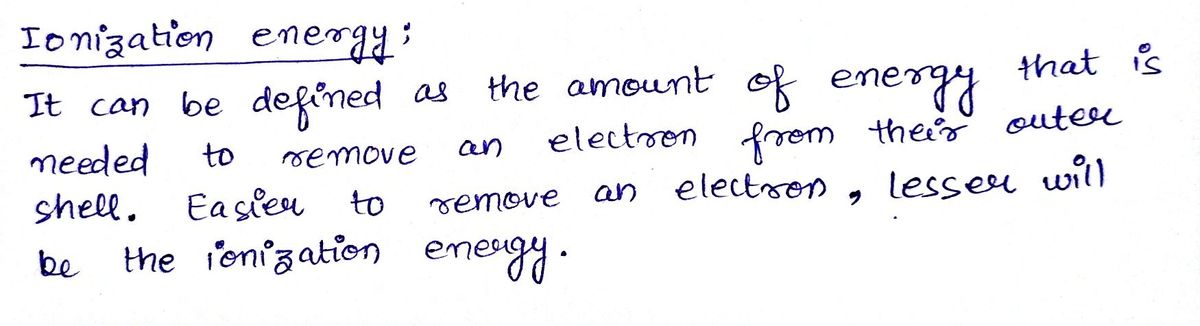 Ionization energy:
It can be defined as the amount of energy that is
needed to remove an electron from their outer
shell. Easier to remove an electron, lesser will
be the ionization energy.